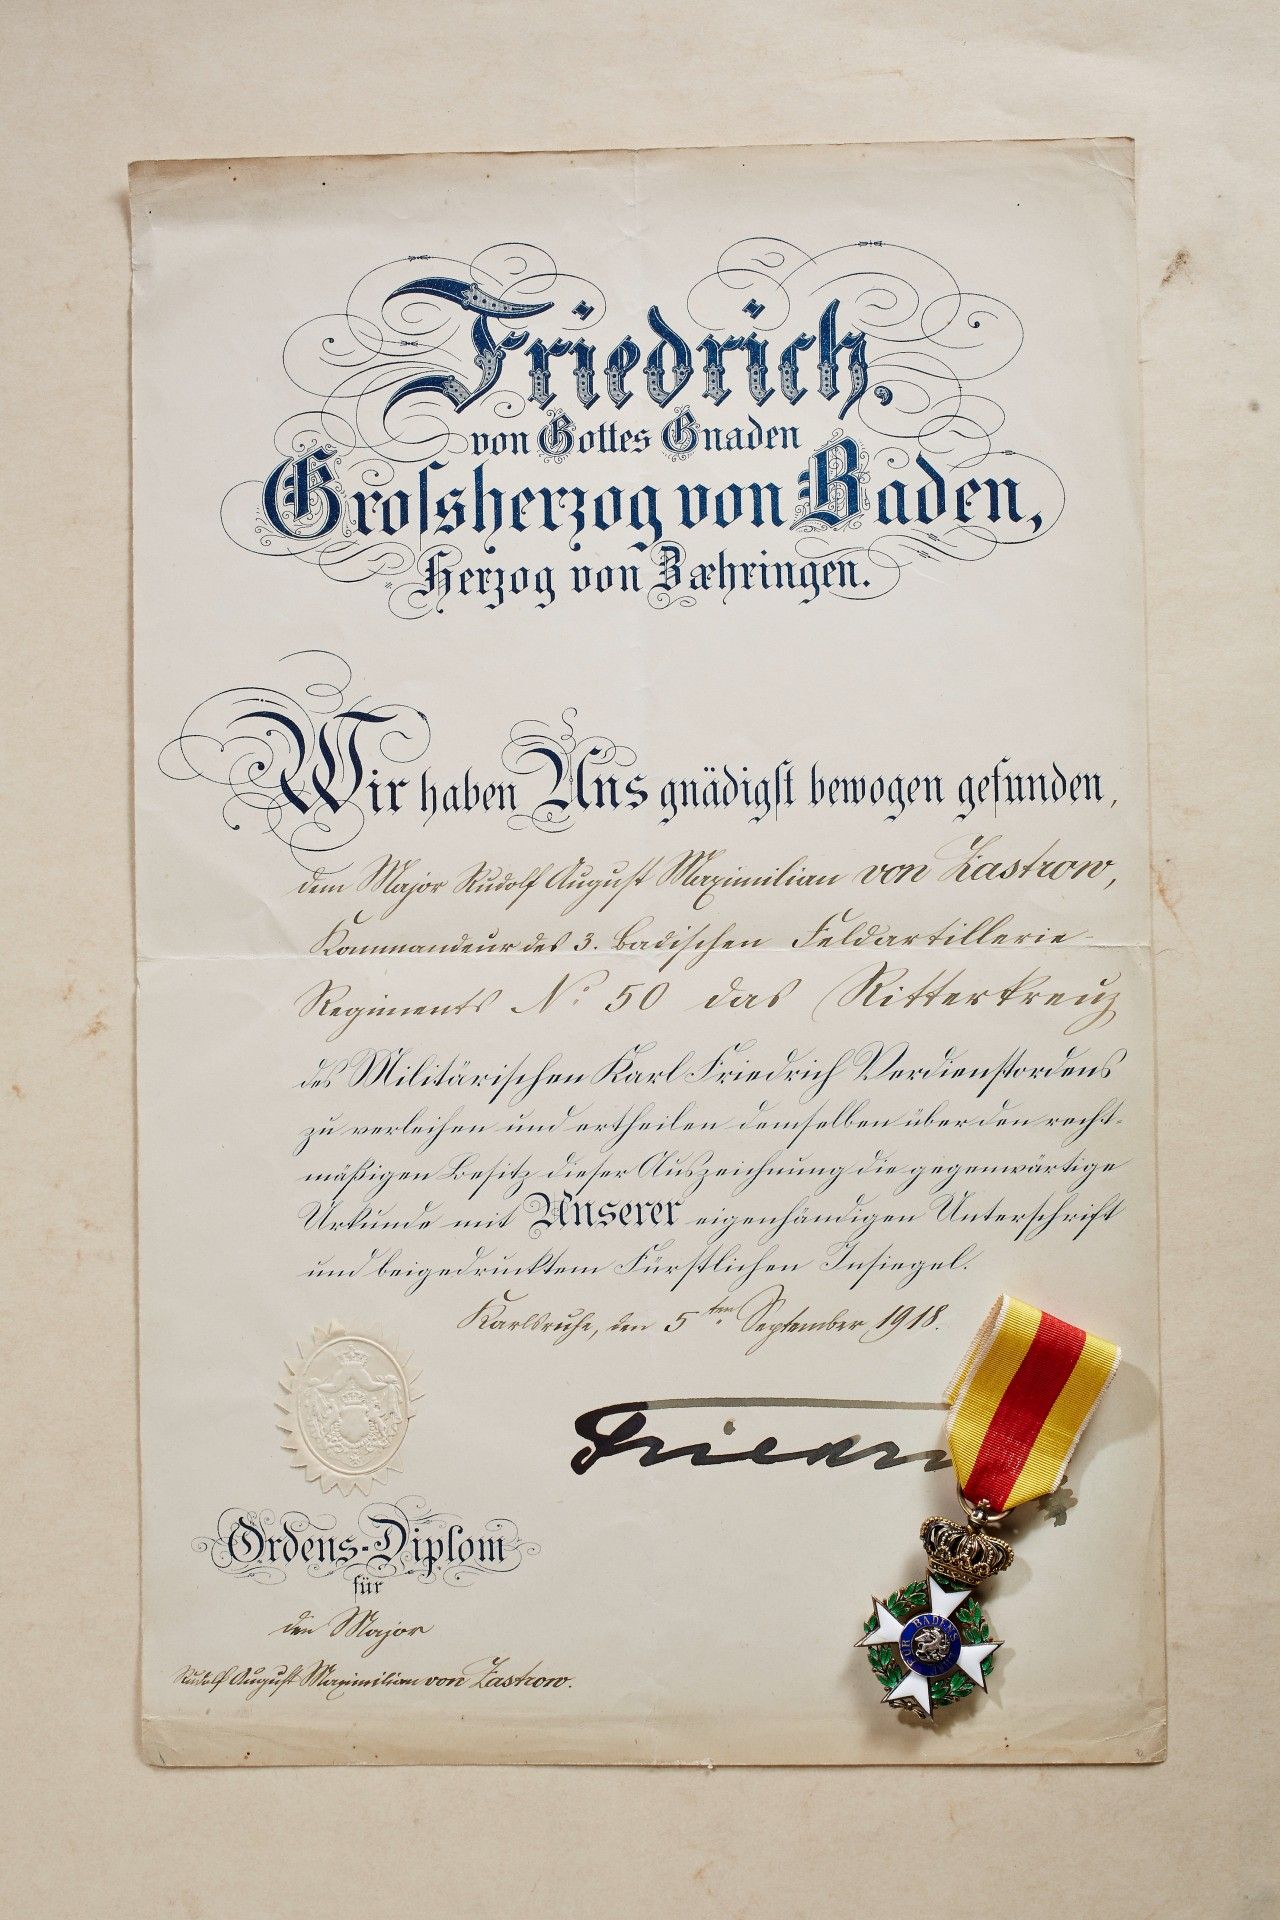 Friedrich,
von Gottes Gnaden
Grofsherzog von Baden,
Herzog von Zæhringen.
Wir haben Uns gnädigst bewogen gefunden,
dem Major Rudolf August Maximilian von Zastrow,
Kommandeur des 3. Badischen Feldartillerie-
Regiments No. 50 das Ritterkreuz
des Militärischen Karl Friedrich Verdienstordens
zu verleihen und ertheilen demselben über den recht-
mäßigen Besitz dieser Auszeichnung die gegenwärtige
Urkunde mit Unserer eigenhändigen Unterschrift
und beigedrucktem Fürstlichen Insiegel.
Karlsruhe, den 5ten September 1918.
Friedri
Ordens-Diplom
für
den Major
Rudolf August Maximilian von Zastrow.
FÜR BADENS